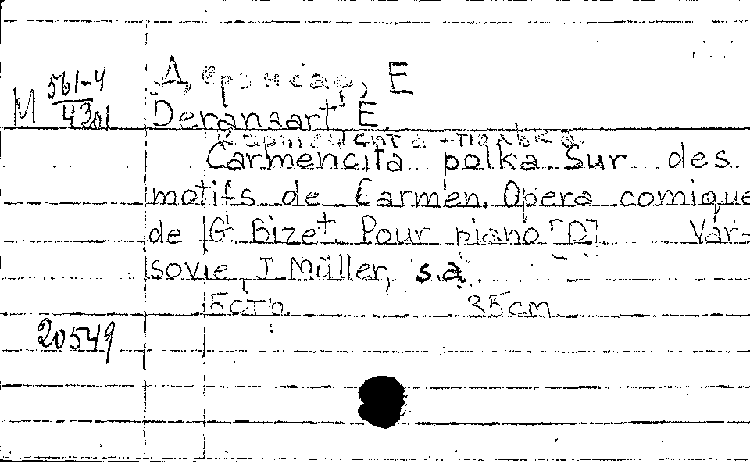 М 561-4
Дерансар, Е
Deransart E
Карменсита - полька.
Carmencita polka sur des
motifs de Carmen. Opera comique
de G Bizet. Pour piano [D] Var-
sovie, J Müller, s.a.
5 стр. 35 cm
20549